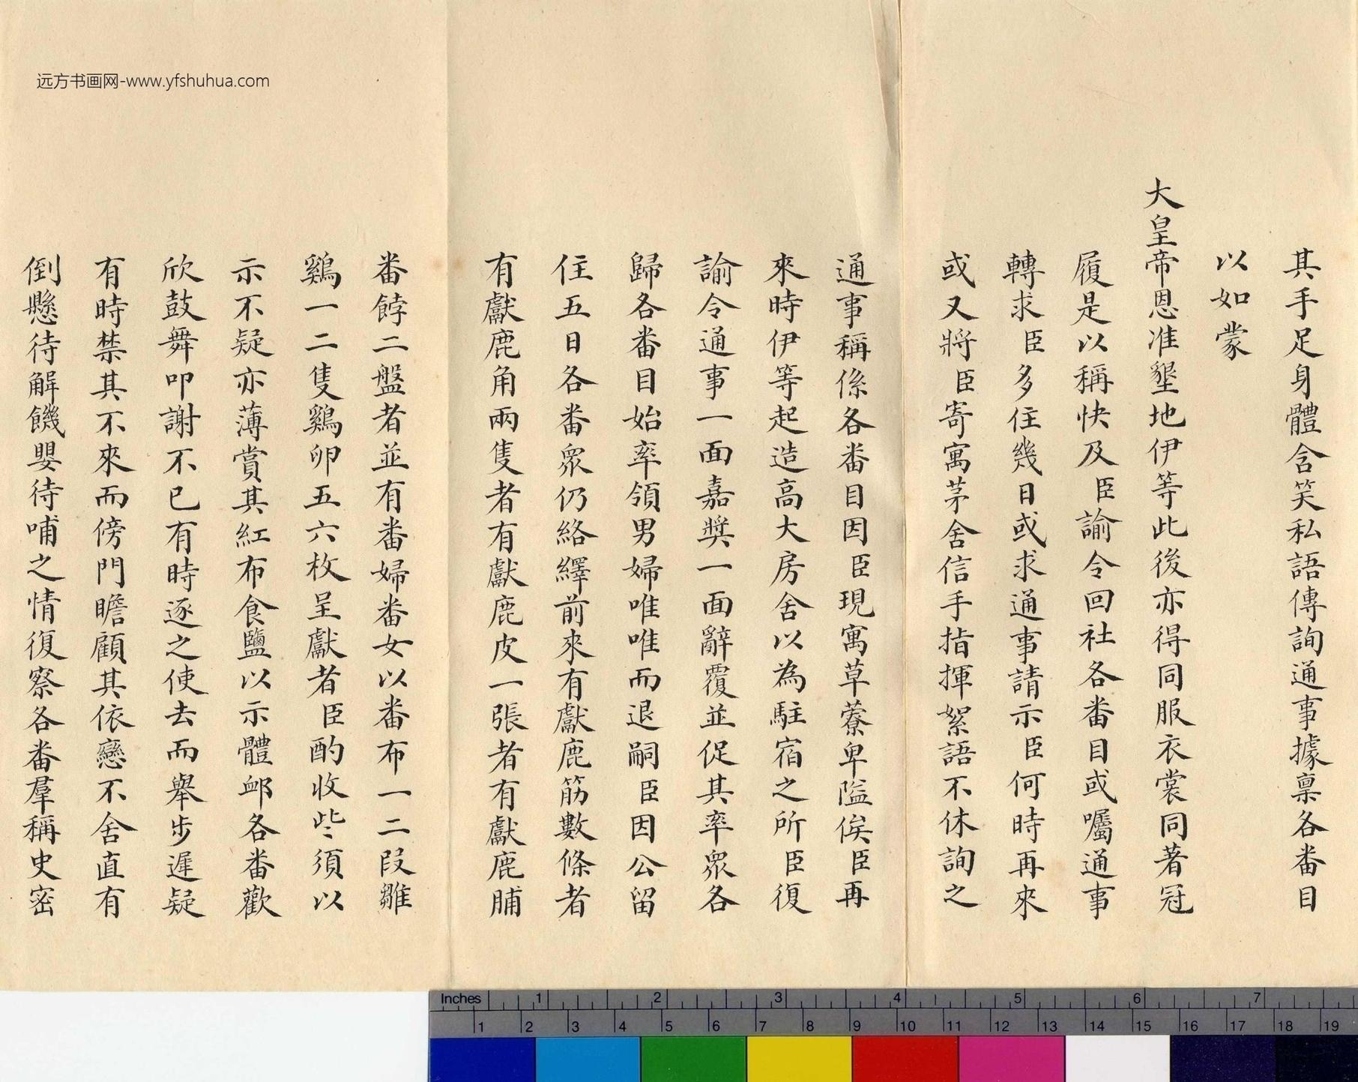 远方书画网-www.yfshuhua.com
其手足身體含笑私語傳詢通事據稟各番目
以如蒙
大皇帝恩准墾地伊等此後亦得同服衣裳同著冠
履是以稱快及臣諭令回社各番目或囑通事
轉求臣多住幾日或求通事請示臣何時再來
或又將臣寄寓茅舍信手指揮絮語不休詢之
通事稱係各番目因臣現寓草藔卑隘俟臣再
來時伊等起造高大房舍以為駐宿之所臣復
諭令通事一面嘉獎一面辭覆並促其率眾各
歸各番目始率領男婦唯唯而退嗣臣因公留
住五日各番眾仍絡繹前來有獻鹿筋數條者
有獻鹿角兩隻者有獻鹿皮一張者有獻鹿脯
番餑二盤者並有番婦番女以番布一二段雛
鷄一二隻鷄卵五六枚呈獻者臣酌收些須以
示不疑亦薄賞其紅布食鹽以示體卹各番歡
欣鼓舞叩謝不已有時逐之使去而舉步遲疑
有時禁其不來而傍門瞻顧其依戀不舍直有
倒懸待解饑嬰待哺之情復察各番羣稱史密
Inches 1 2 3 4 5 6 7
1 2 3 4 5 6 7 8 9 10 11 12 13 14 15 16 17 18 19